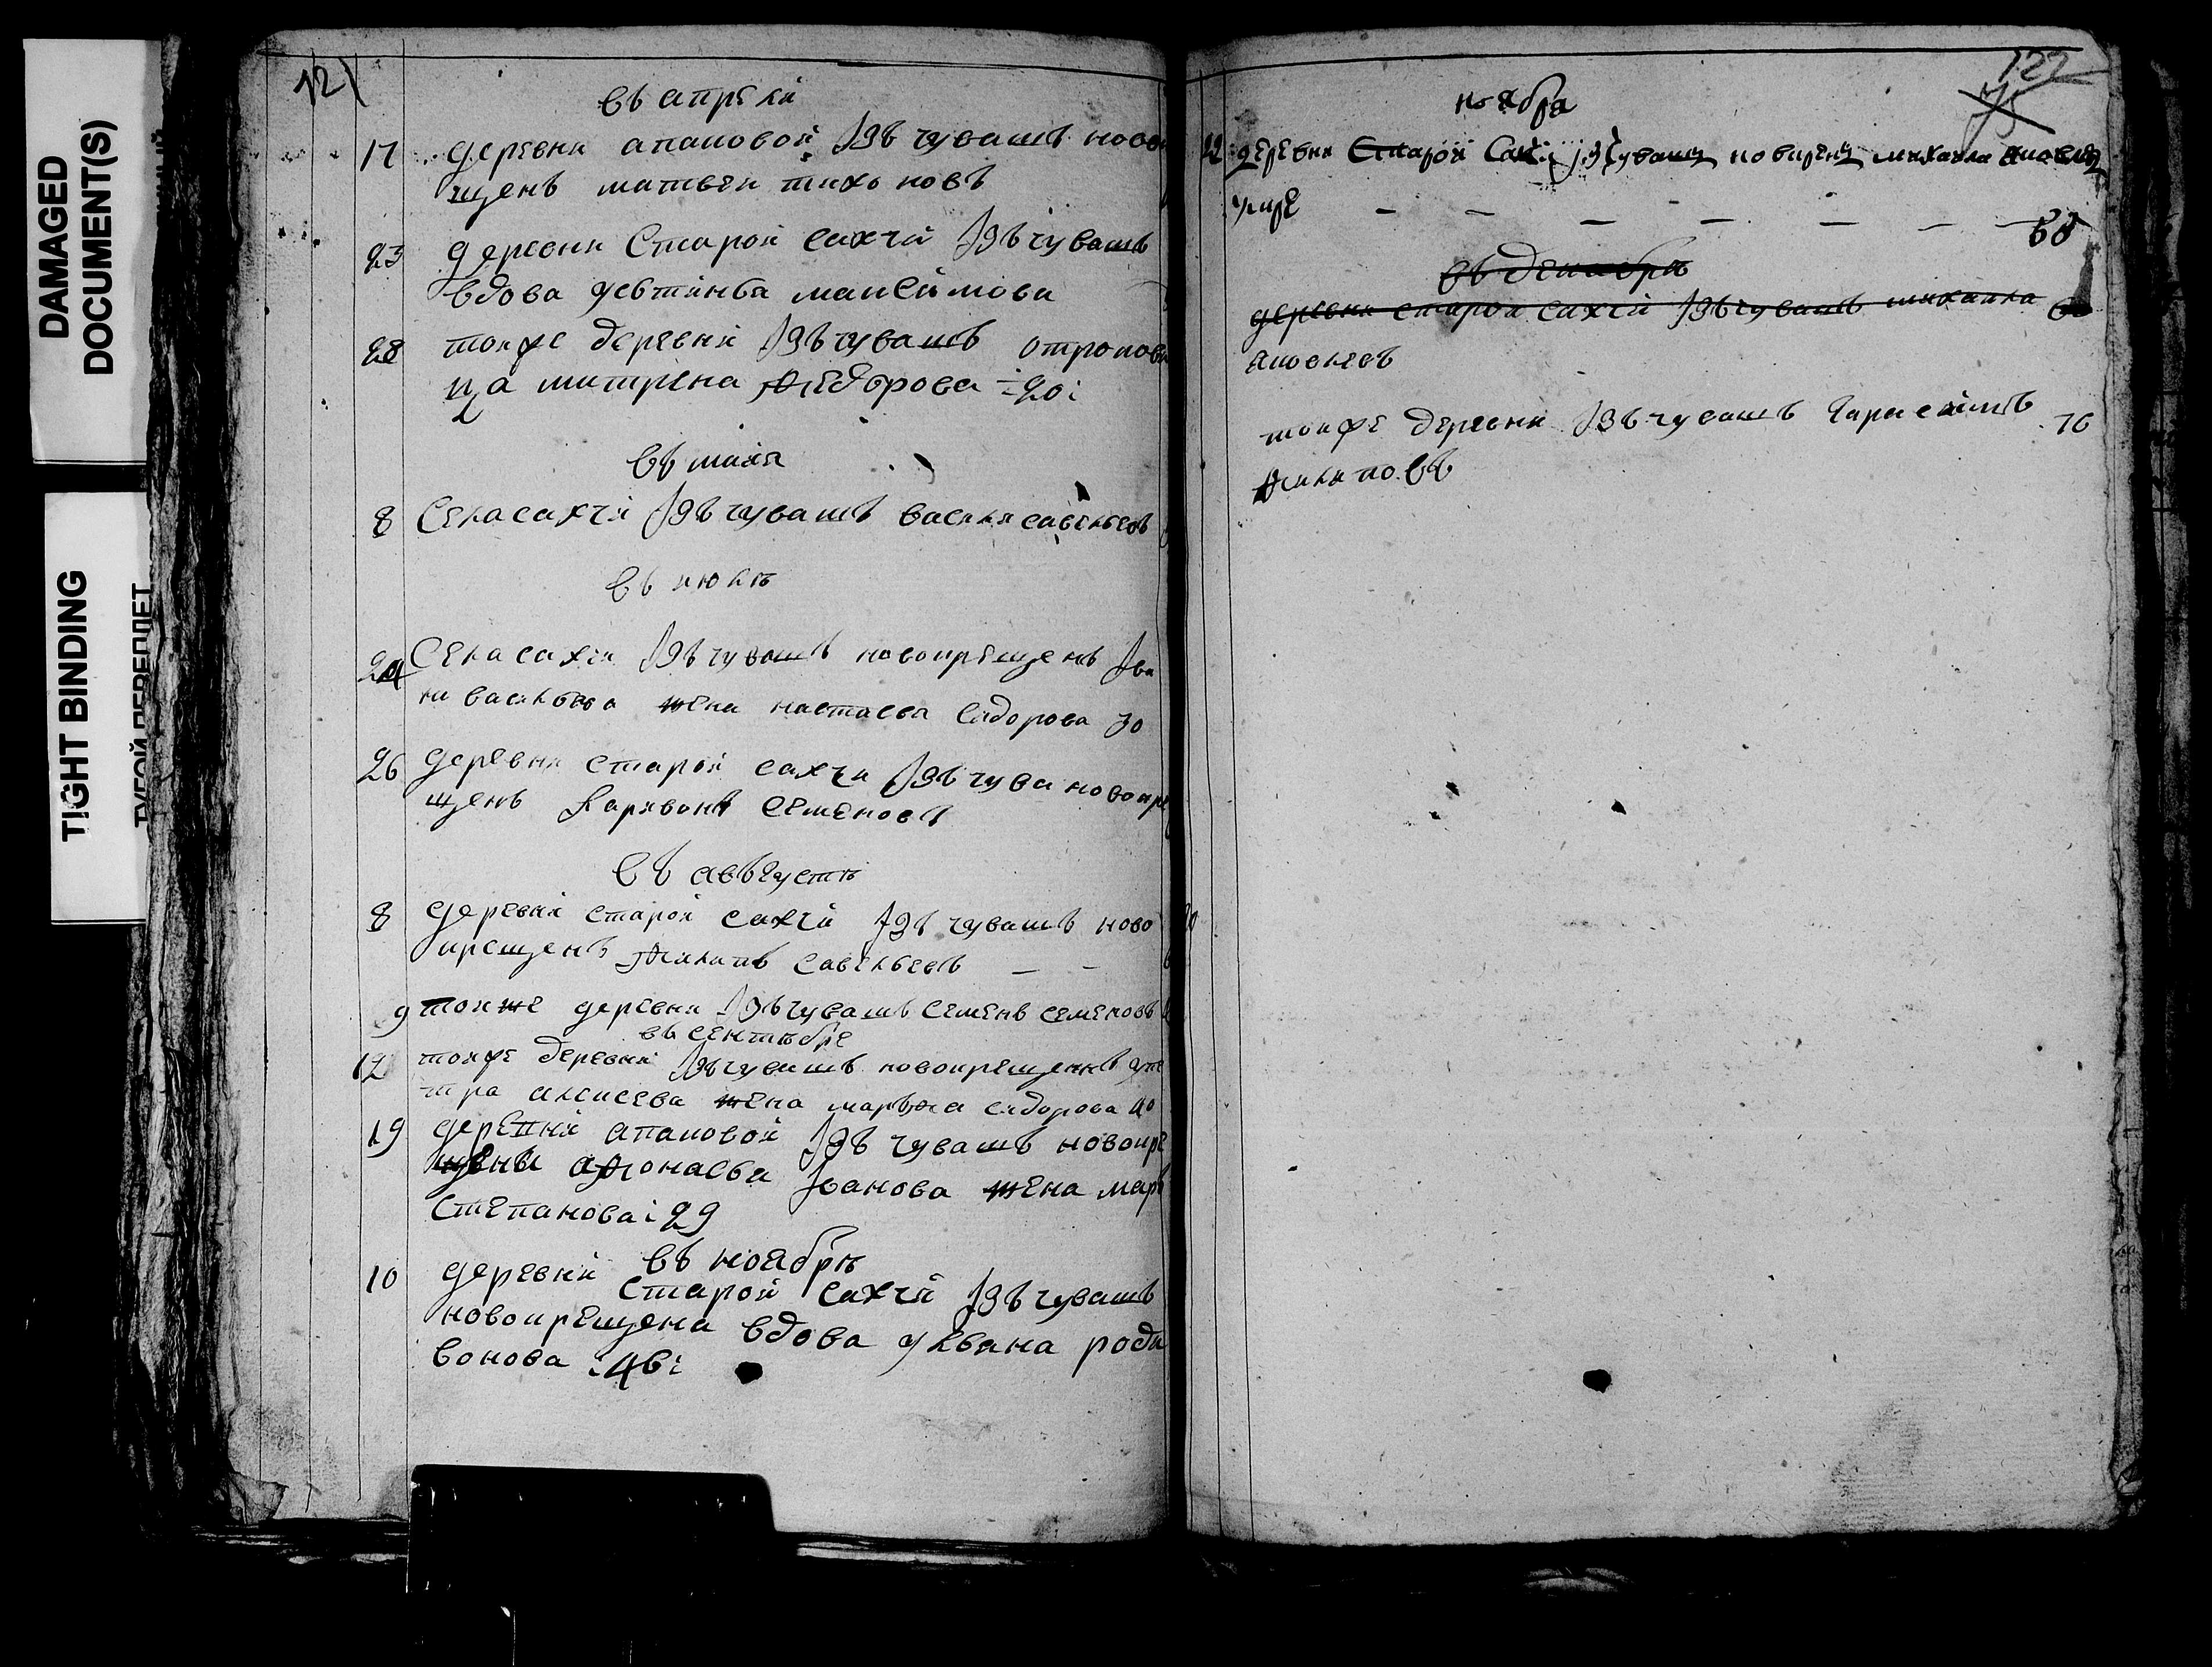 DAMAGED
DOCUMENT(S)
TIGHT BINDING
ТУГОЙ ПЕРЕПЛЕТ
121
въ апрели
17 деревни апаковой Jзъ чувашъ ново
щенъ матвеи тихоновъ
23 деревни Старои сахчи Jзъ чувашъ
вдова устинья максимова
28 тоиже деревни Jзъ чувашъ отрокови
ца митрена ѳедорова 20
въ маия
8 Села сахчи Jзъ чувашъ василеи савельевъ
въ июлѣ
24 Села сахчи Jзъ чувашъ новокрещенъ Jва
на васильева жена настасья сидорова 30
26 деревни старои сахчи Jзъ чува новокре
щенъ Ларивонъ семеновъ
въ августѣ
8 деревни старои сахчи Jзъ чувашъ ново
крещенъ ѳилипъ савельевъ
9 тоиже деревни Jзъ чувашъ семенъ семеновъ
въ сентябре
12 тоиже деревни Jзъ чувашъ новокрещенъ
тра алексеева жена марья сидорова 40
19 деревни апаковой Jзъ чувашъ новокре
щены аѳонасья Jванова жена мар
степанова 29
въ ноябрѣ
10 деревни старои сахчи Jзъ чувашъ
новокрещена вдова ульяна роди
вонова 46
122
75
ноября
22 деревни Старои Сахчи Jз чуваш новокрещ михаила яковлев
умре 60
въ декабрѣ
деревни старои сахчи Jзъ чувашъ михаила
яковлевъ
тоиже деревни Jзъ чувашъ Гарасимъ 70
ѳилиповъ